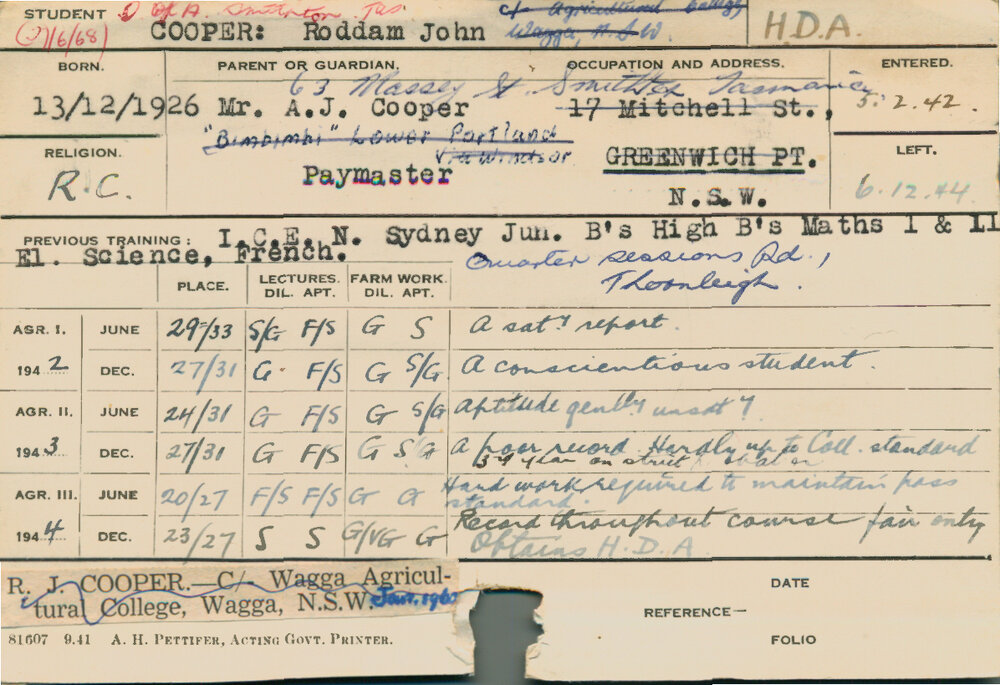 STUDENT D of A. Smithton Tas c/- Agricultural College
(7/6/68) COOPER: Roddam John Wagga, N.S.W. H.D.A.
BORN. PARENT OR GUARDIAN. OCCUPATION AND ADDRESS. ENTERED.
63 Massey St. Smithton Tasmania
13/12/1926 Mr. A.J. Cooper 17 Mitchell St., 5.2.42.
"Bimbimbi" Lower Portland
RELIGION. Via Windsor GREENWICH PT. LEFT.
R.C. Paymaster N.S.W. 6.12.44
PREVIOUS TRAINING: I.C.E. N. Sydney Jun. B's High B's Maths 1 & 11
El. Science, French. Quarter Sessions Rd.,
Thornleigh.
PLACE. LECTURES. FARM WORK.
DIL. APT. DIL. APT.
AGR. I. JUNE 29/33 S/G F/S G S A sat.y report.
1942 DEC. 27/31 G F/S G S/G A conscientious student.
AGR. II. JUNE 24/31 G F/S G S/G Aptitude genlly unsat y
1943 DEC. 27/31 G F/S G S/G A poor record. Hardly up to Coll. standard
3rd year on strict
AGR. III. JUNE 20/27 F/S F/S G G Hard work required to maintain pass
standard.
1944 DEC. 23/27 S S G/VG G Record throughout course fair only
Obtains H.D.A
R. J. COOPER.—C/- Wagga Agricul-
tural College, Wagga, N.S.W. Jan. 1960
DATE
REFERENCE—
FOLIO
81607 9.41 A. H. PETTIFER, ACTING GOVT. PRINTER.